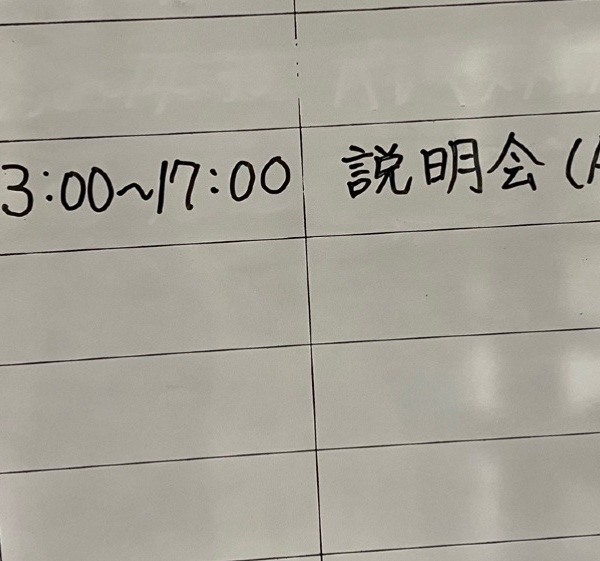 3:00~17:00 説明会(